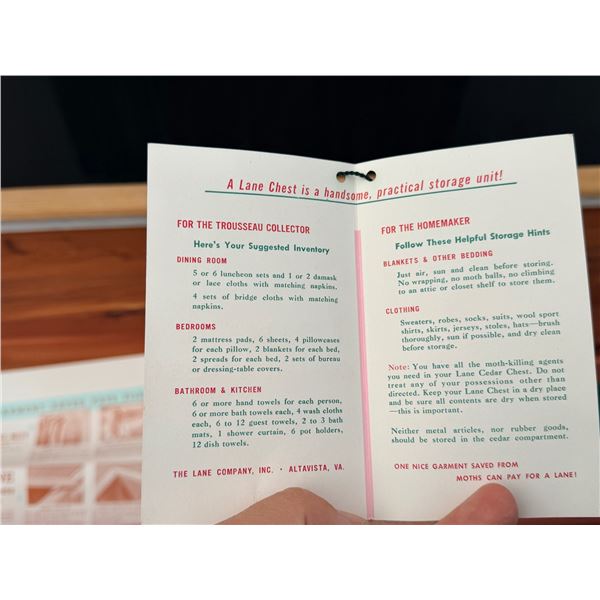 A Lane Chest is a handsome, practical storage unit!
FOR THE TROUSSEAU COLLECTOR
Here's Your Suggested Inventory
DINING ROOM
5 or 6 luncheon sets and 1 or 2 damask
or lace cloths with matching napkins.
4 sets of bridge cloths with matching
napkins.
BEDROOMS
2 mattress pads, 6 sheets, 4 pillowcases
for each pillow, 2 blankets for each bed,
2 spreads for each bed, 2 sets of bureau
or dressing-table covers.
BATHROOM & KITCHEN
6 or more hand towels for each person,
6 or more bath towels each, 4 wash cloths
each, 6 to 12 guest towels, 2 to 3 bath
mats, 1 shower curtain, 6 pot holders,
12 dish towels.
THE LANE COMPANY, INC. • ALTAVISTA, VA.
FOR THE HOMEMAKER
Follow These Helpful Storage Hints
BLANKETS & OTHER BEDDING
Just air, sun and clean before storing.
No wrapping, no moth balls, no climbing
to an attic or closet shelf to store them.
CLOTHING
Sweaters, robes, socks, suits, wool sport
shirts, skirts, jerseys, stoles, hats—brush
thoroughly, sun if possible, and dry clean
before storage.
Note: You have all the moth-killing agents
you need in your Lane Cedar Chest. Do not
treat any of your possessions other than
directed. Keep your Lane Chest in a dry place
and be sure all contents are dry when stored
—this is important.
Neither metal articles, nor rubber goods,
should be stored in the cedar compartment.
ONE NICE GARMENT SAVED FROM
MOTHS CAN PAY FOR A LANE!